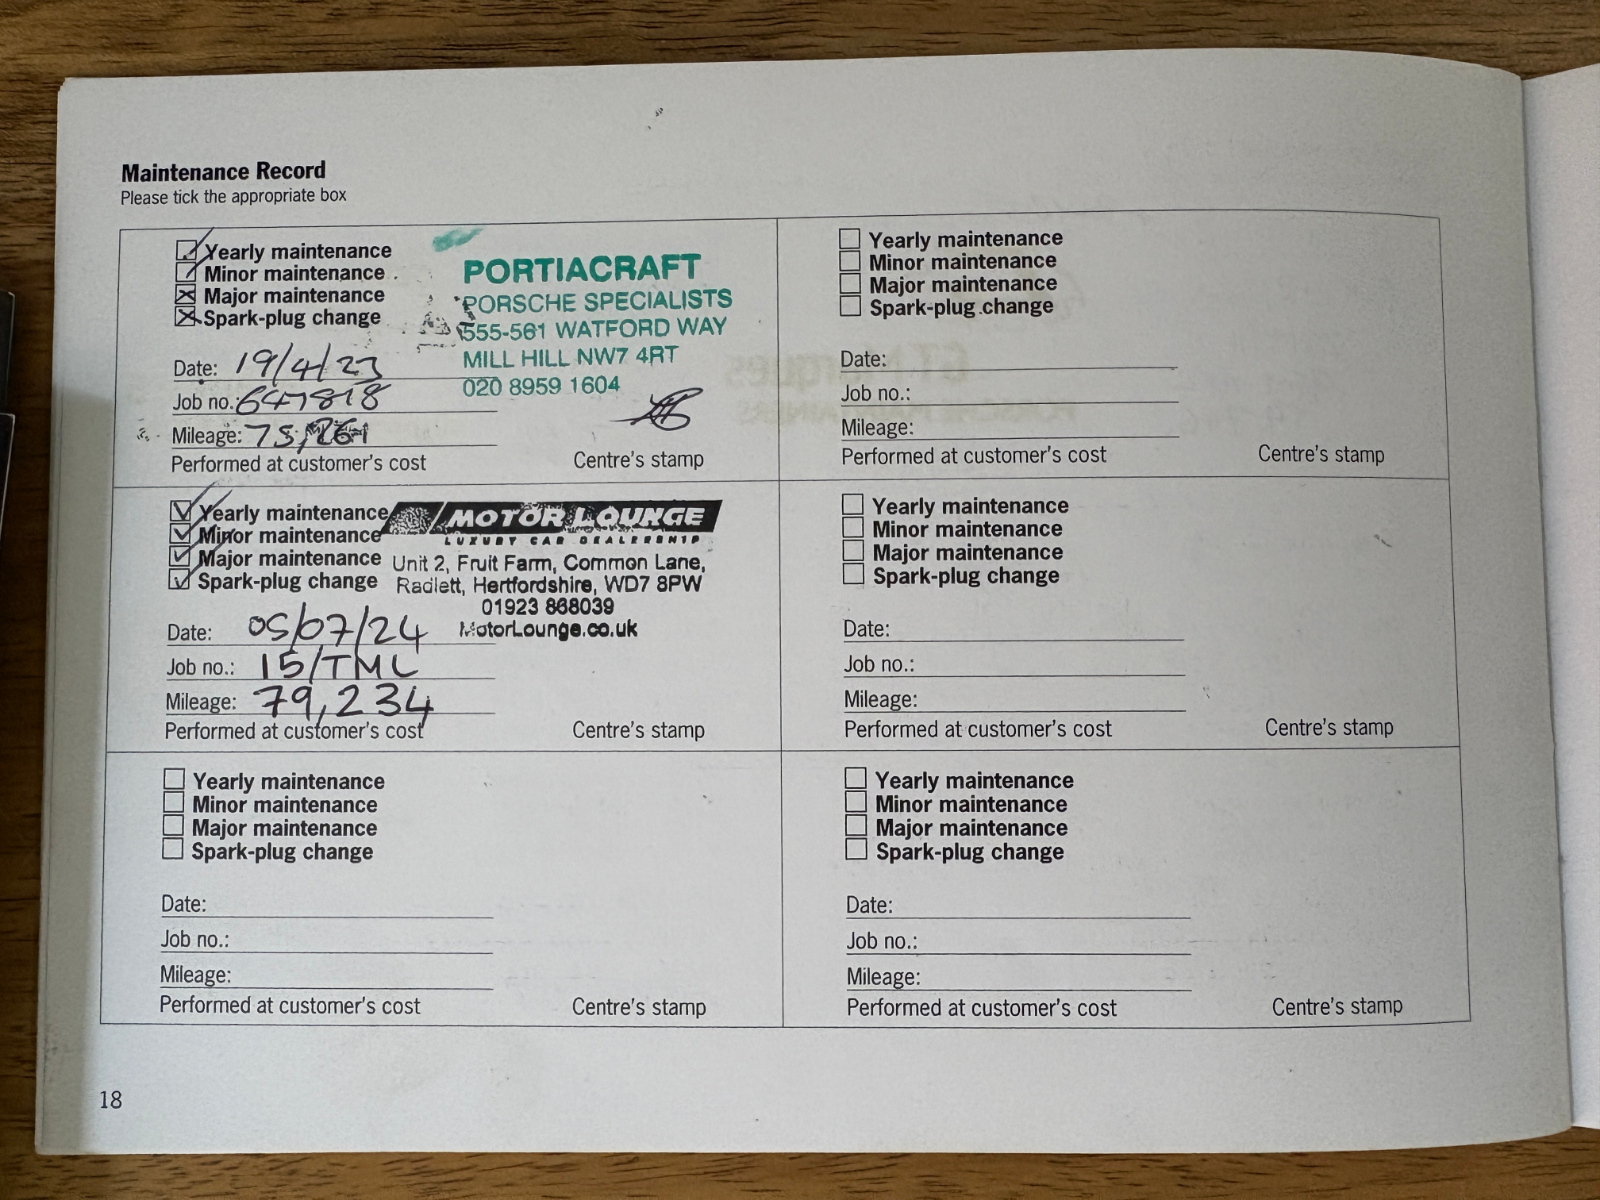 Maintenance Record
Please tick the appropriate box
Yearly maintenance
Minor maintenance
Major maintenance
Spark-plug change
Date: 19/4/23
Job no.: 647818
Mileage: 75,261
Performed at customer's cost
PORTIACRAFT
PORSCHE SPECIALISTS
555-561 WATFORD WAY
MILL HILL NW7 4RT
020 8959 1604
Centre's stamp
Yearly maintenance
Minor maintenance
Major maintenance
Spark-plug change
Date:
Job no.:
Mileage:
Performed at customer's cost
Centre's stamp
Yearly maintenance
Minor maintenance
Major maintenance
Spark-plug change
Date: 05/07/24
Job no.: 15/TML
Mileage: 79,234
Performed at customer's cost
MOTOR LOUNGE
LUXURY CAR DEALERSHIP
Unit 2, Fruit Farm, Common Lane,
Radlett, Hertfordshire, WD7 8PW
01923 868039
MotorLounge.co.uk
Centre's stamp
Yearly maintenance
Minor maintenance
Major maintenance
Spark-plug change
Date:
Job no.:
Mileage:
Performed at customer's cost
Centre's stamp
Yearly maintenance
Minor maintenance
Major maintenance
Spark-plug change
Date:
Job no.:
Mileage:
Performed at customer's cost
Centre's stamp
Yearly maintenance
Minor maintenance
Major maintenance
Spark-plug change
Date:
Job no.:
Mileage:
Performed at customer's cost
Centre's stamp
18